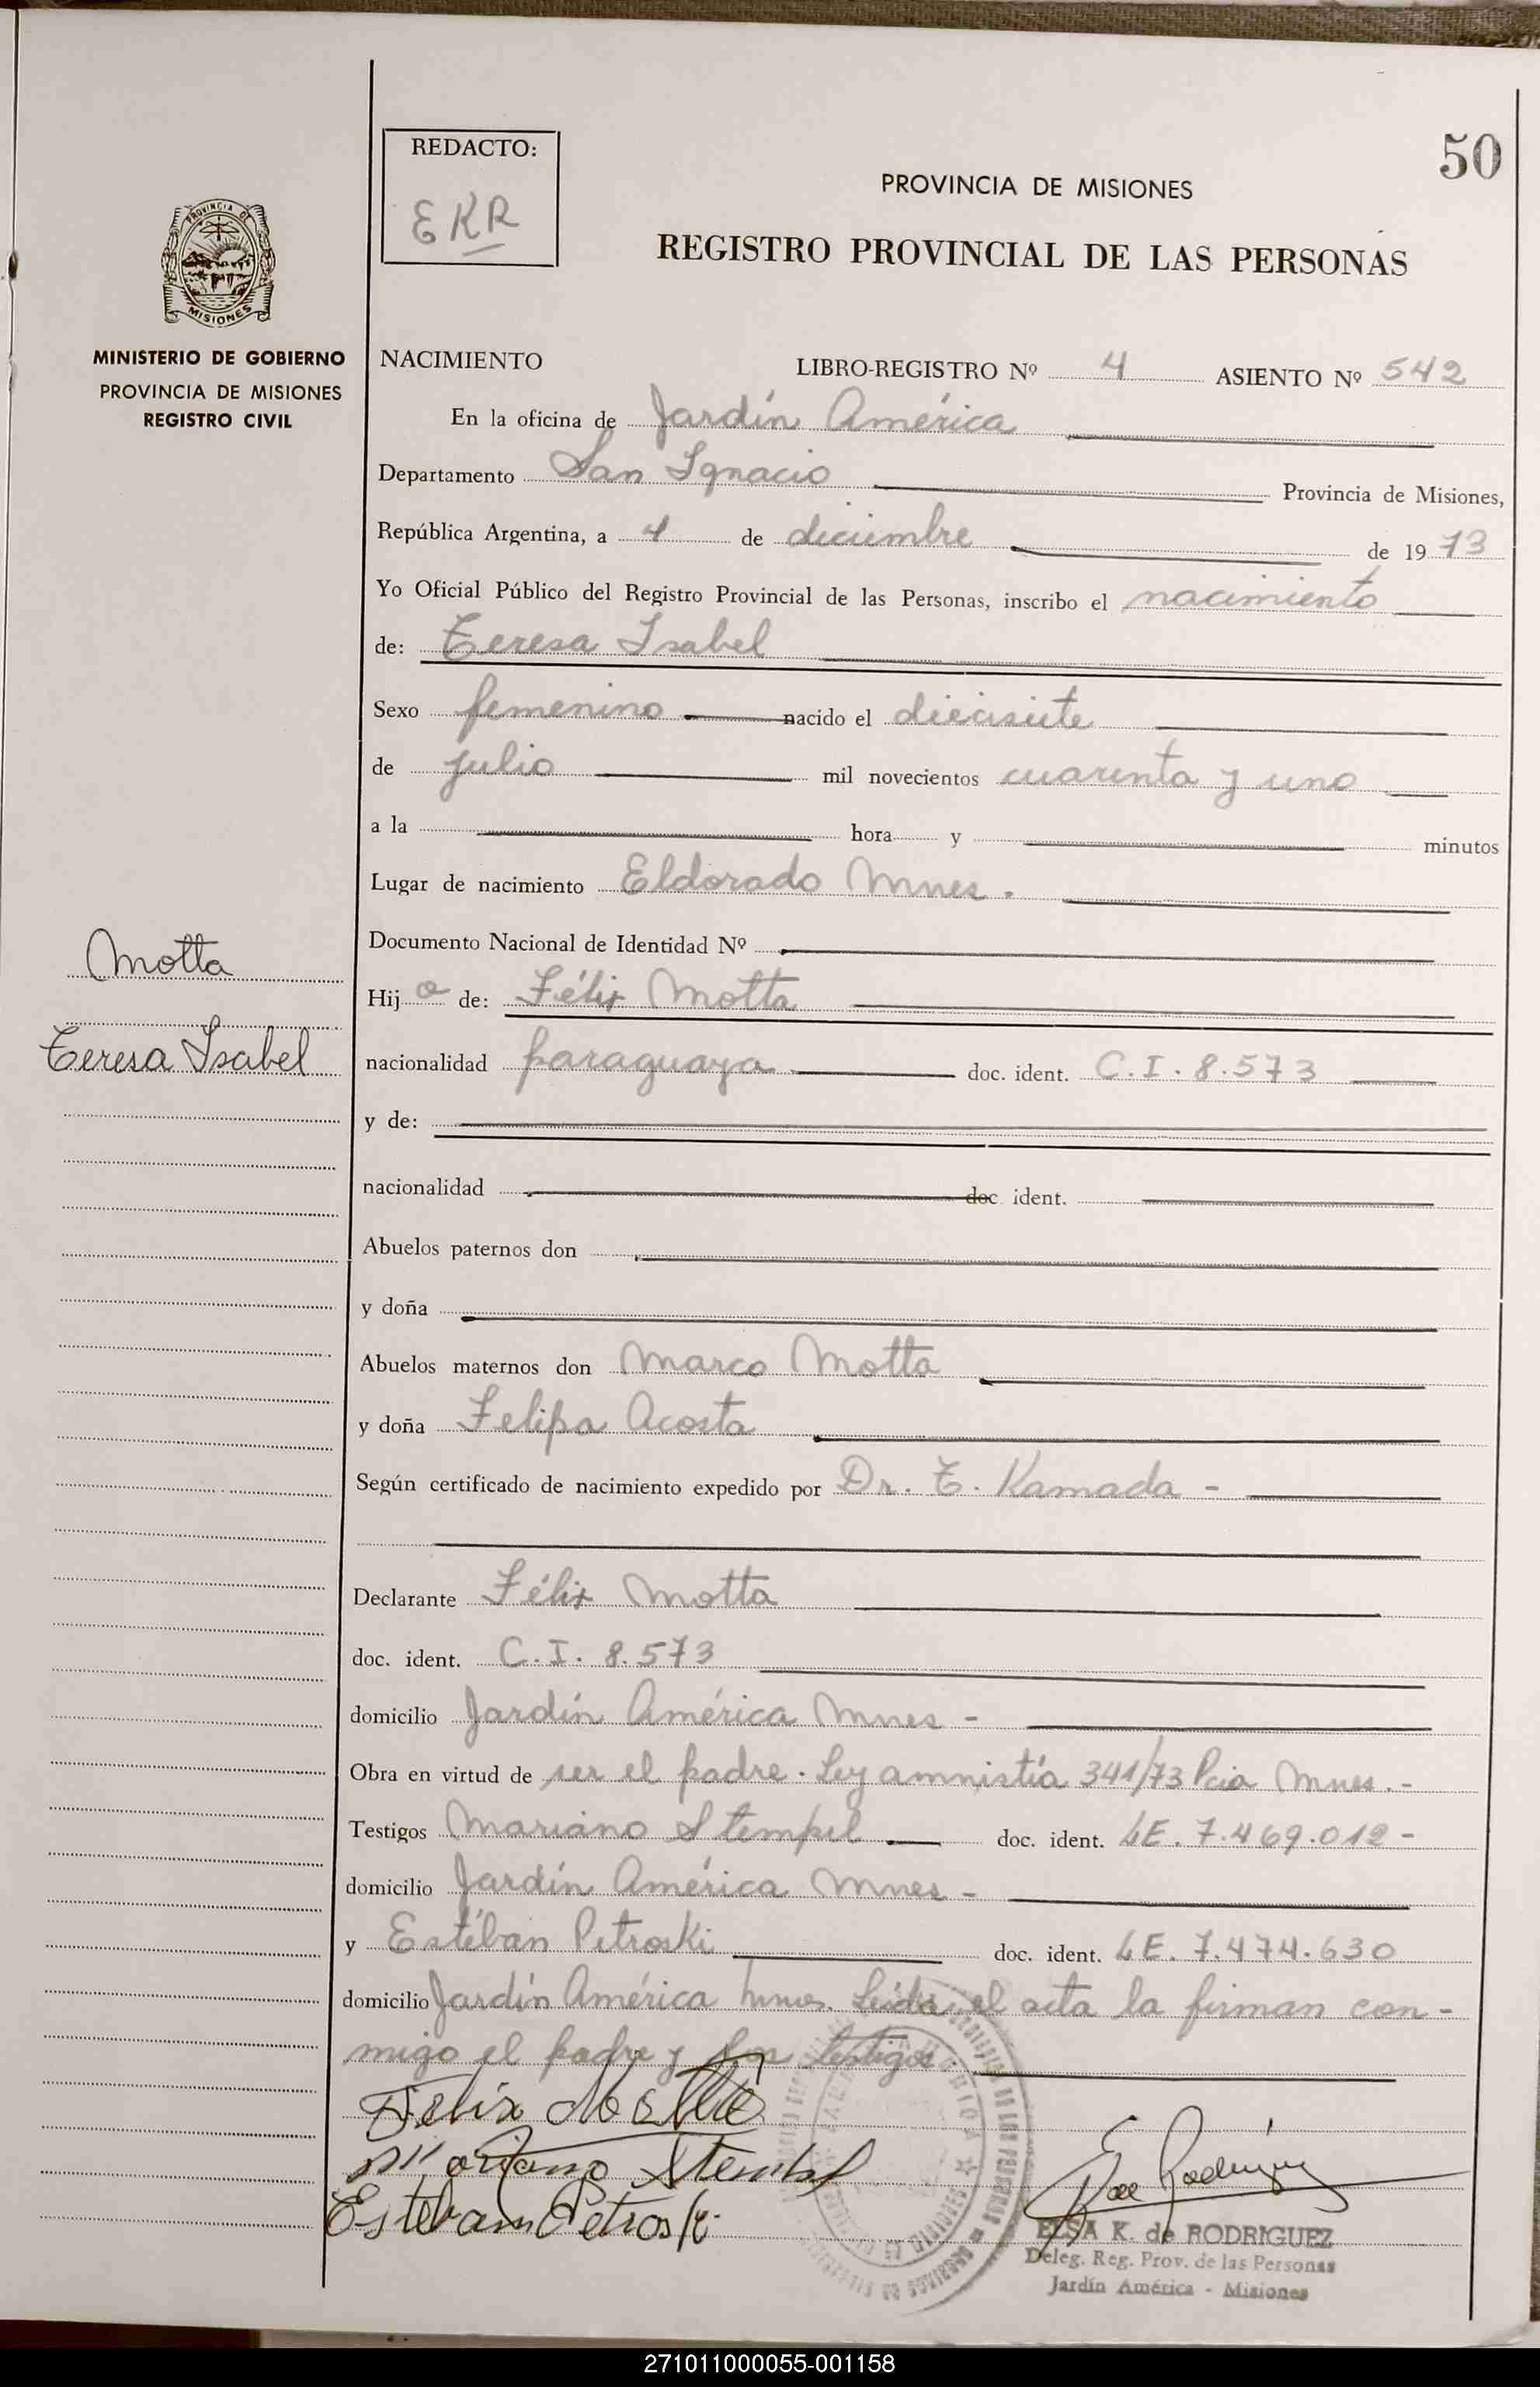 50
REDACTO:
EKR
PROVINCIA DE MISIONES
REGISTRO PROVINCIAL DE LAS PERSONAS
PROVINCIA DE
MISIONES
MINISTERIO DE GOBIERNO
PROVINCIA DE MISIONES
REGISTRO CIVIL
NACIMIENTO LIBRO-REGISTRO Nº 4 ASIENTO Nº 542
En la oficina de Jardín América
Departamento San Ignacio Provincia de Misiones,
República Argentina, a 4 de diciembre de 1973
Yo Oficial Público del Registro Provincial de las Personas, inscribo el nacimiento
de: Teresa Isabel
Sexo femenino nacido el diecisiete
de julio mil novecientos cuarenta y uno
a la hora y minutos
Lugar de nacimiento Eldorado Mnes.
Documento Nacional de Identidad Nº
Motta
Hija de: Félix Motta
Teresa Isabel
nacionalidad paraguaya doc. ident. C.I. 8.573
y de:
nacionalidad doc ident.
Abuelos paternos don
y doña
Abuelos maternos don Marco Motta
y doña Felipa Acosta
Según certificado de nacimiento expedido por Dr. T. Kamada -
Declarante Félix Motta
doc. ident. C.I. 8.573
domicilio Jardín América Mnes -
Obra en virtud de ser el padre. Ley amnistía 341/73 Pcia Mnes.-
Testigos Mariano Stempel doc. ident. LE. 7.469.012-
domicilio Jardín América Mnes -
y Estéban Petroski doc. ident. LE. 7.474.630
domicilio Jardín América Mnes. Leída el acta la firman con-
migo el padre y los testigos.
Felix Motta
Mariano Stempel
Esteban Petroski
ELSA K. de RODRIGUEZ
Deleg. Reg. Prov. de las Personas
Jardín América - Misiones
271011000055-001158